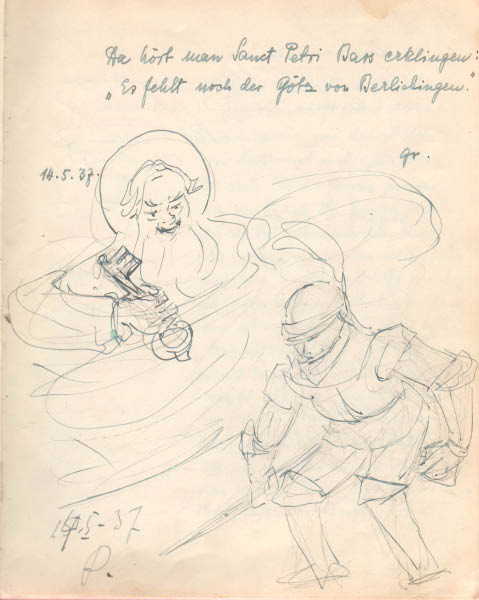 Da hört man Sanct Petri Bass erklingen:
„Es fehlt noch der Götz von Berlichingen."
Fr.
14.5.37.
14.5-37
P.